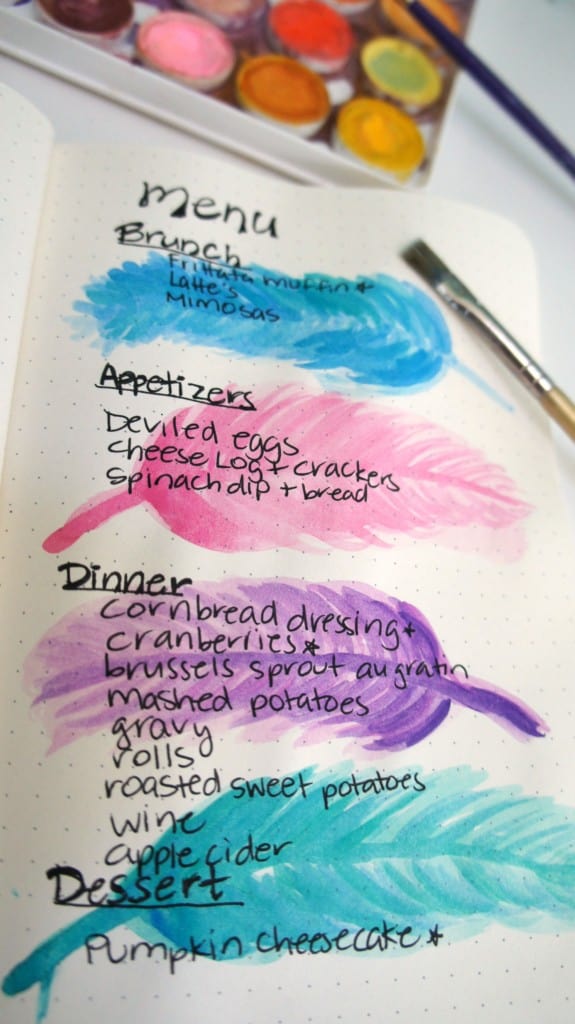 menu
Brunch
Frittata muffin *
Latte's
Mimosas
Appetizers
Deviled eggs
Cheese Log + crackers
Spinach dip + bread
Dinner
cornbread dressing *
cranberries *
brussels sprout au gratin
mashed potatoes
gravy
rolls
roasted sweet potatoes
wine
apple cider
Dessert
Pumpkin cheesecake *